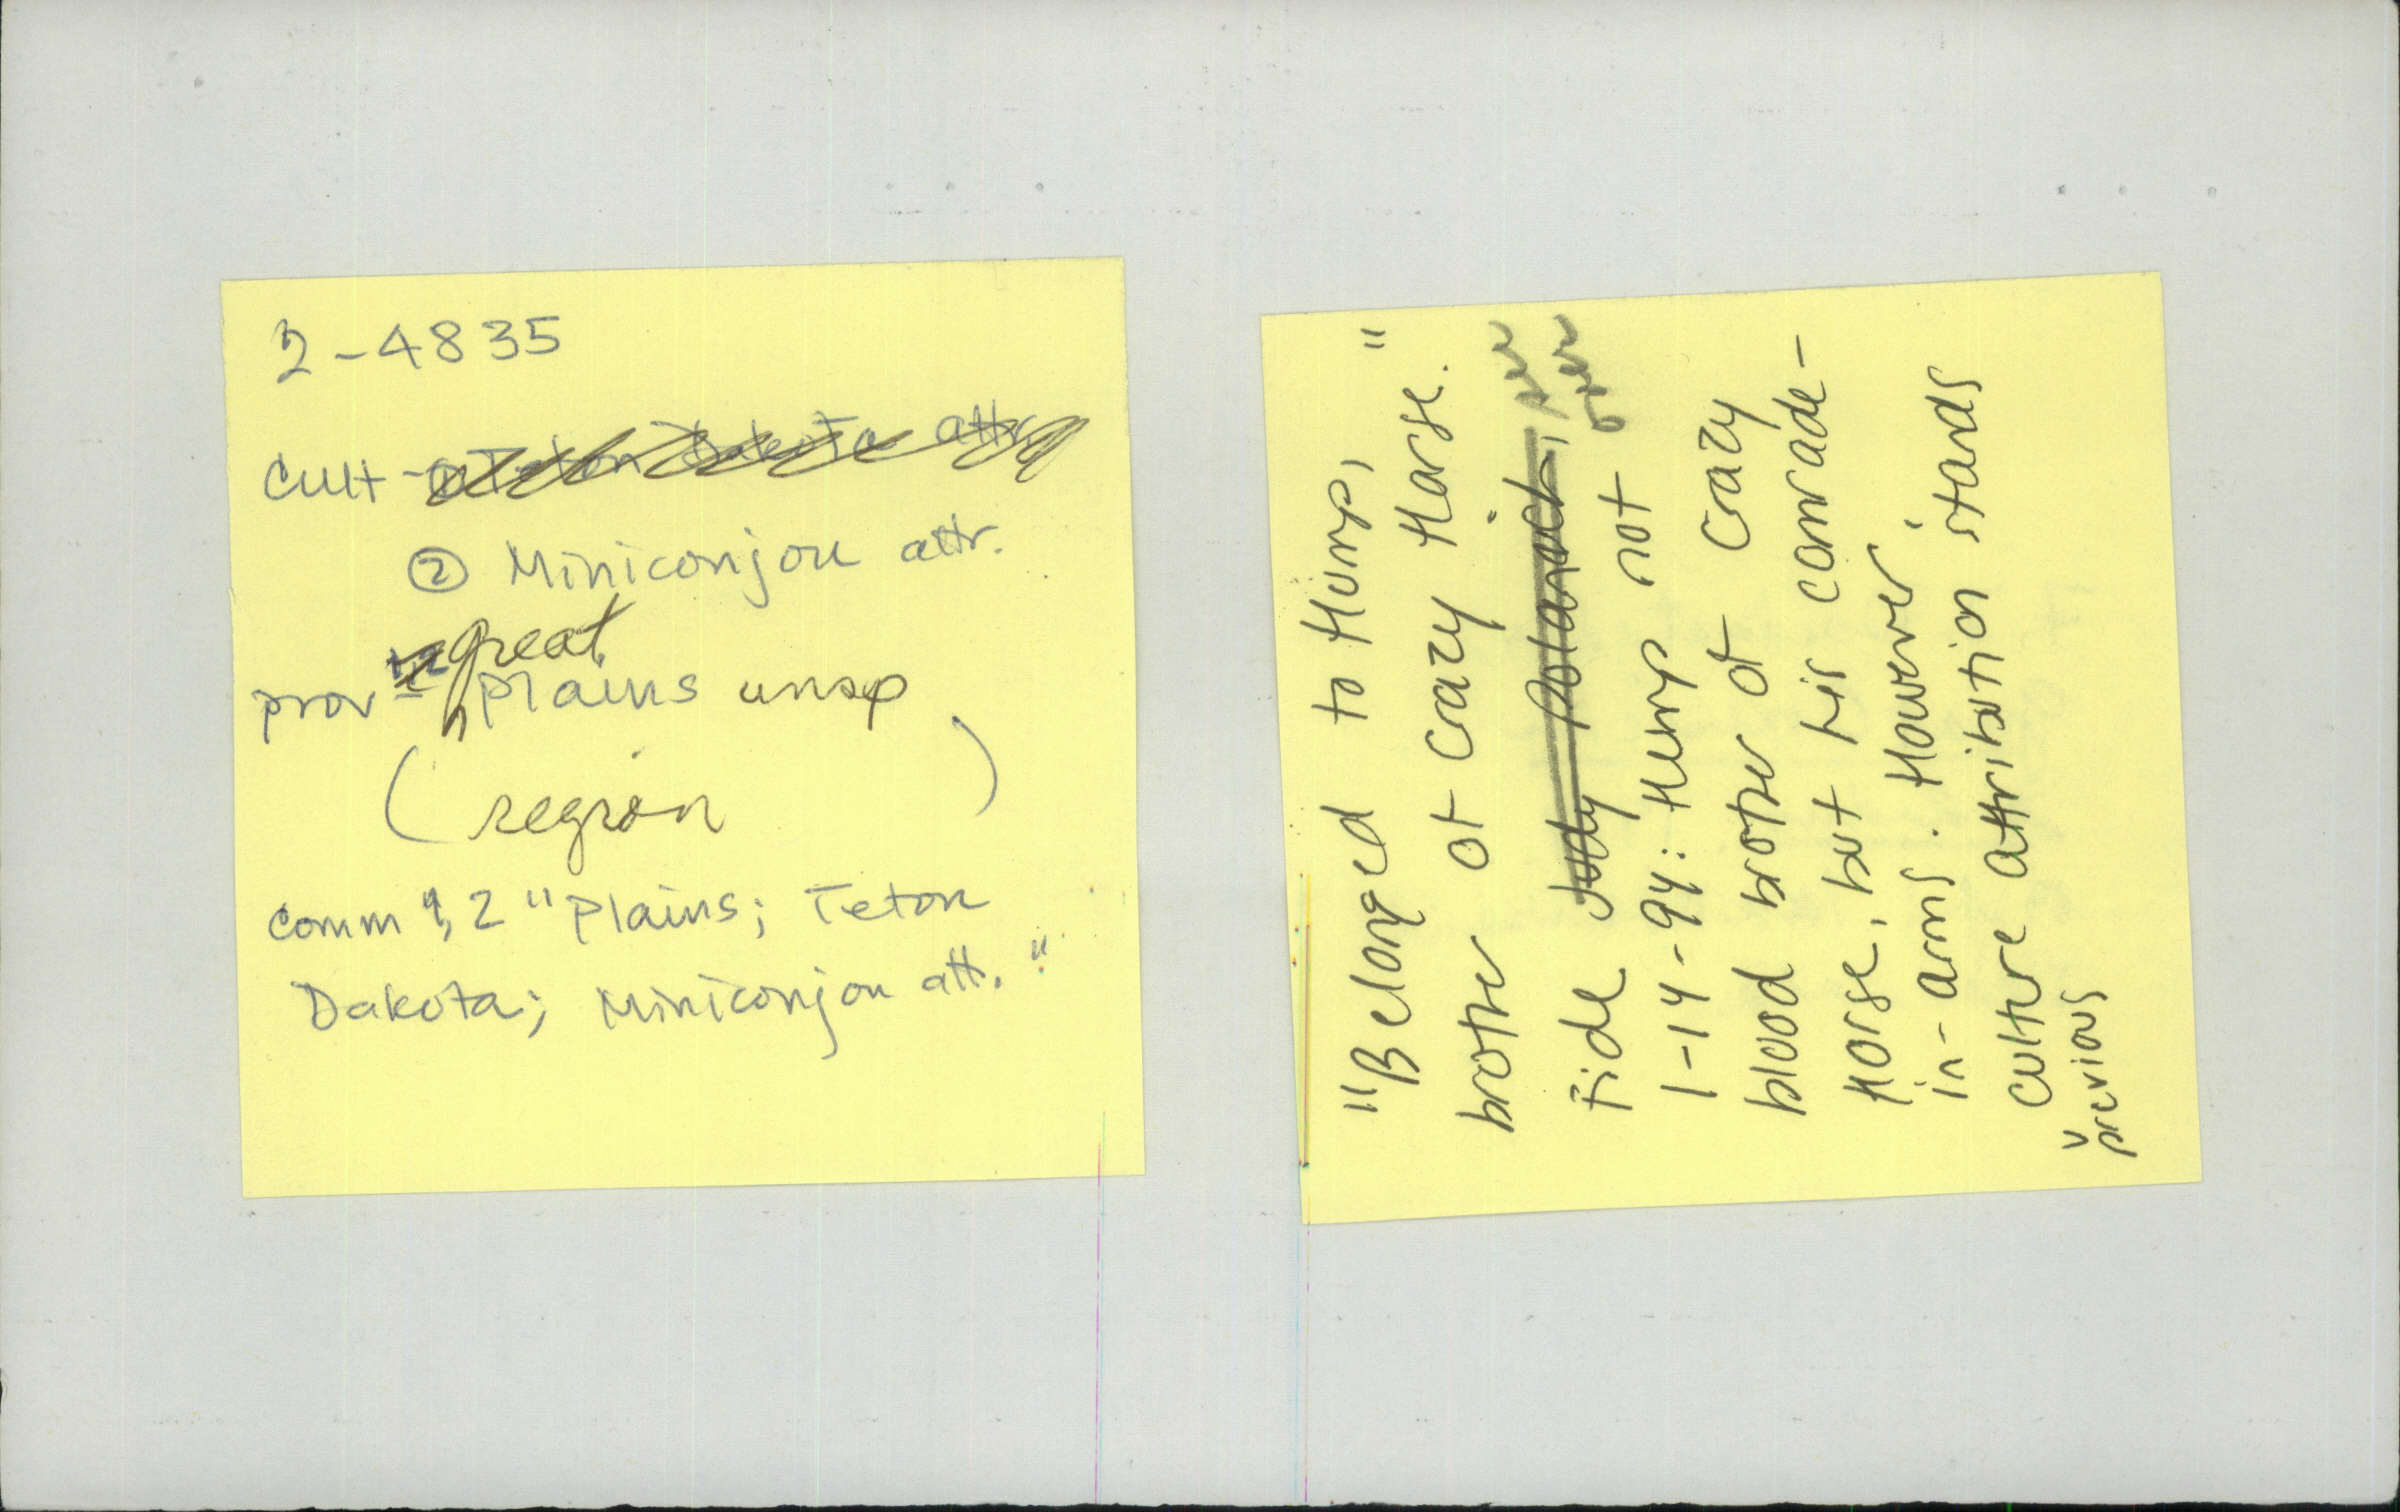 2-4835
cult - Teton Dakota attr.
② Miniconjou attr.
great
prov Plains unsp
( region )
comm 1, 2 "Plains; Teton
Dakota; Miniconjou att."
"Belonged to Hump,
brother of Crazy Horse."
Fide Judy Polanich, per
1-14-94: Hump not over
blood brother of Crazy
Horse, but his comrade-
in-arms. However,
culture attribution stands
previous